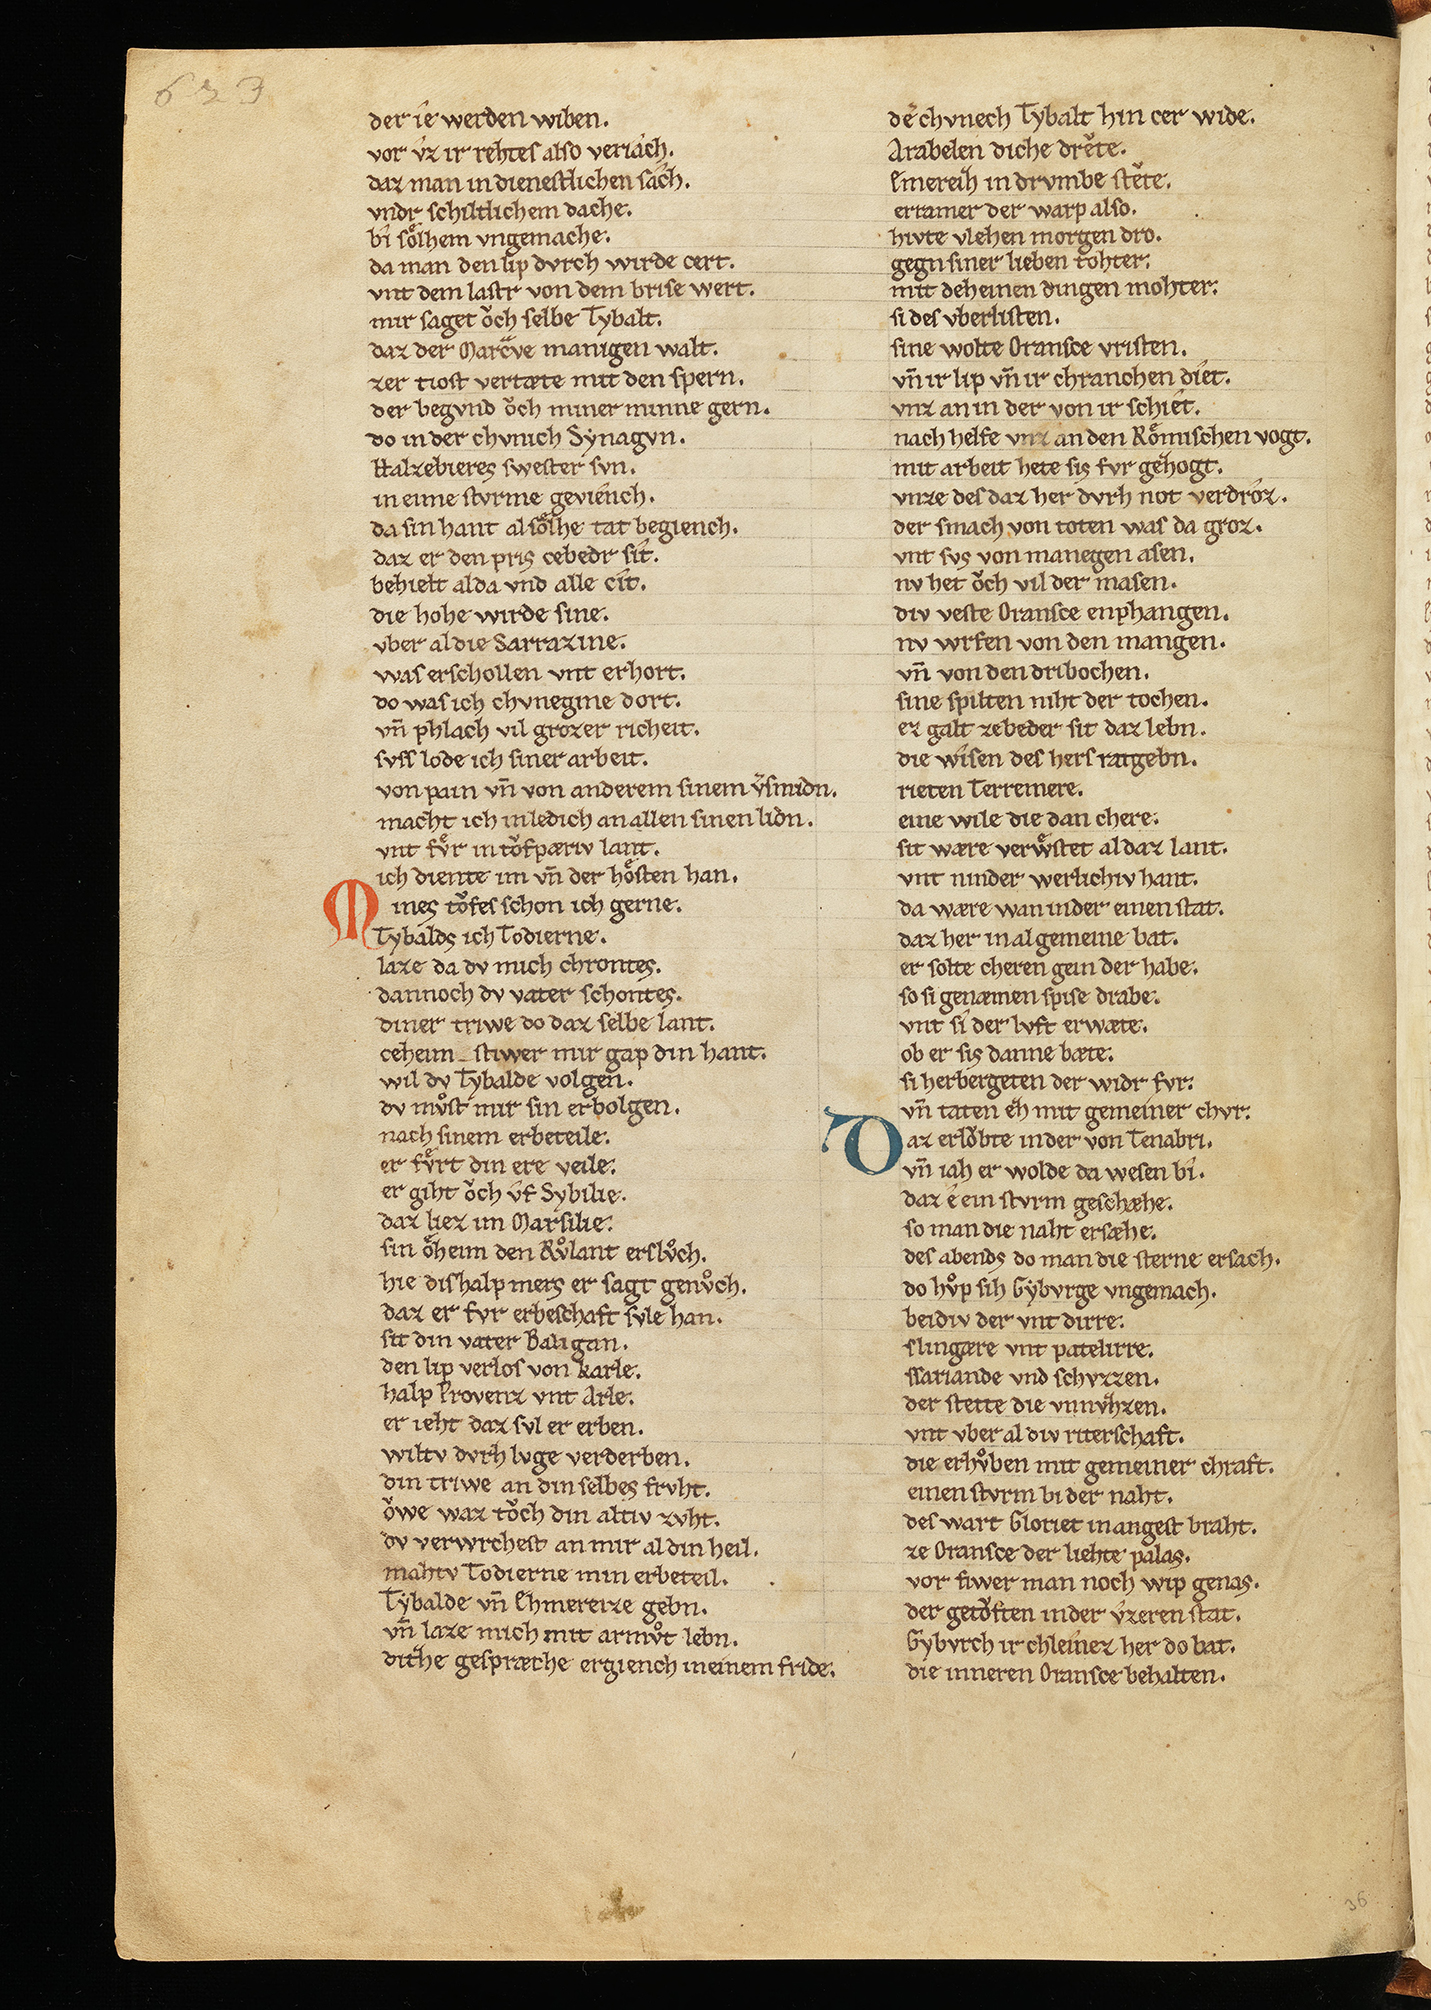 623
der îe werden wiben.
vor v́z ir rehtes also veriach.
daz man in dienestlichen sach.
vndr schiltlichem dache.
bî soͤlhem vngemache.
da man den lip dvrch wirde cert.
vnt dem lastr von dem brise wert.
mir saget oͮch selbe Tybalt.
daz der Mareve manigen walt.
zer tiost vertæte mit den spern.
der begvnd oͮch miner minne gern.
do in der chvnich Synagvn.
Halzebieres swester svn.
in eime stvrme gevîench.
da sin hant al soͤlhe tat begiench.
daz er den pris cebedr sît.
behielt alda vnd alle cît.
die hohe wirde sine.
vber al die Sarrazine.
was erschollen vnt erhort.
do was ich chvnegine dort.
vn̄ phlach vil grozer richeit.
svss lode ich siner arbeit.
von pain vn̄ von anderem sinem v̄smidn.
macht ich in ledich an allen sinen lidn.
vnt fvͤr in toͮfpæriv lant.
ich diente im vn̄ der hoͤsten han.
Mines toͮfes schon ich gerne.
Tybalds ich Todierne.
laze da dv mich chrontes.
dannoch dv vater schontes.
diner triwe do daz selbe lant.
ceheim_stiwer mir gap din hant.
wil dv Tybalde volgen.
dv mvͦst mir sin erbolgen.
nach sinem erbeteile.
er fvͤrt din ere veile.
er giht oͮch v́f Sybilie.
daz liez im Marsilie.
sin oͤheim den Rvͦlant erslvͦch.
hie dishalp mers er sagt genvͦch.
daz er fvr erbeschaft svle han.
sit din vater Baligan.
den lip verlos von karle.
halp Provenz vnt Arle.
er ieht daz svl er erben.
wiltv dvrh lvge verderben.
din triwe an din selbes frvht.
oͮwe waz toͮch din altiv zvht.
dv verwrchest an mir al din heil.
mahtv Todierne min erbeteil.
Tybalde vn̄ Ehmereize gebn.
vn̄ laze mich mit armvͦt lebn.
dithe gespræche ergiench in einem fride.
de᷑ chvnech Tybalt hin cer wide.
Arabelen diche drete.
Emereih in drvmbe stete.
erramer der warp also.
hivte vlehen morgen dro.
gegn siner lieben tohter.
mit deheinen dingen mohter.
si des vberlisten.
sine wolte Oransce vristen.
vn̄ ir lip vn̄ ir chranchen dîet.
vnz an in der von ir schiet.
nach helfe vnz an den Roͤmischen vogt.
mit arbeit hete sis fvr gehogt.
vnze des daz her dvrh not verdroz.
der smach von toten was da groz.
vnt svs von manegen asen.
nv het oͮch vil der masen.
div veste Oransce enphangen.
nv wrfen von den mangen.
vn̄ von den dribochen.
sine spilten niht der tochen.
ez galt zebeder sit daz lebn.
die wîsen des hers ratgebn.
rieten Terremere.
eine wile die dan chere.
sit wære verwͤstet al daz lant.
vnt ninder werlichiv hant.
da wære wan in der einen stat.
daz her in al gemeine bat.
er solte cheren gein der habe.
so si genæmen spise drabe.
vnt sî der lvft erwæte.
ob er sis danne bæte.
si herbergeten der widr fvr.
vn̄ taten eh mit gemeiner chvr.
Daz erloͮbte in der von Tenabri.
vn̄ iah er wolde da wesen bî.
daz e ein stvrm geschæhe.
so man die naht ersæhe.
des abends do man die sterne ersach.
do hvͦp sih Gybvrge vngemach.
beidiv der vnt dirre.
slingære vnt patelirre.
ssariande vnd schvzzen.
der stette die vnnvͤhzen.
vnt vber al div riterschaft.
die erhvͦben mit gemeiner chraft.
einen stvrm bi der naht.
des wart Gloriet in angest braht.
ze Oransce der liehte palas.
vor fiwer man noch wip genas.
der getoͮften in der v́zeren stat.
Gybvrch ir chleinez her do bat.
die inneren Oransce behalten.
36